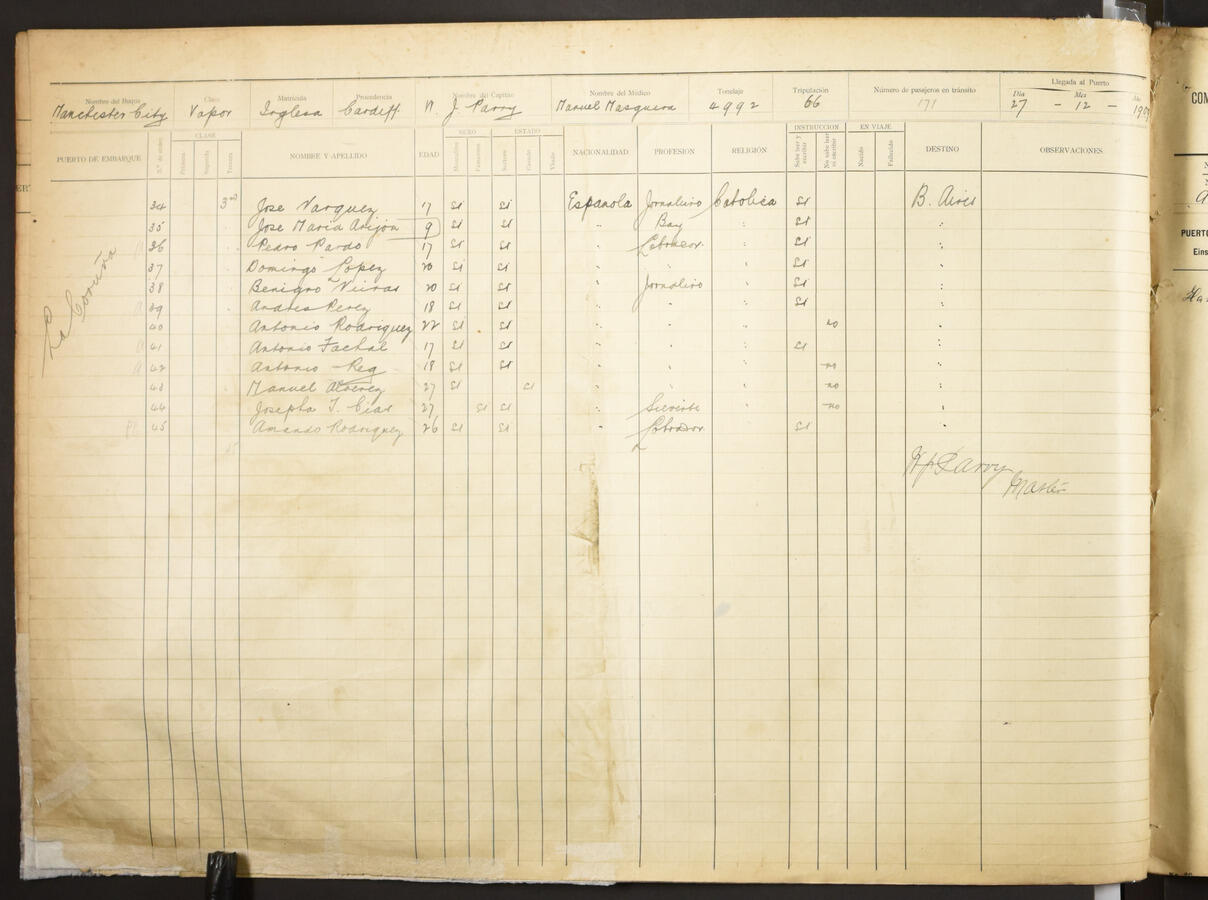 Nombre del Buque Clase Matrícula Procedencia Nombre del Capitán Nombre del Médico Tonelaje Tripulación Número de pasejeros en tránsito Llegada al Puerto
Día Mes Año
Manchester City Vapor Inglesa Cardiff J. Parry Manuel Masquera 4992 66 171 27 - 12 -
PUERTO DE EMBARQUE N.º de orden CLASE Primera Segunda Tercera NOMBRE Y APELLIDO EDAD SEXO Masculino Femenino ESTADO Soltero Casado Viudo NACIONALIDAD PROFESION RELIGIÓN INSTRUCCION Sabe leer y escribir No sabe leer ni escribir EN VIAJE Nacido Fallecido DESTINO OBSERVACIONES
La Coruña
34 3ª Jose Varquez 17 si si Espanola Jornaliro Catolica si B. Aires
35 Jose Maria Arijon 9 si si " Boy " si "
36 Pedro Pardo 17 si si " Labrador " si "
37 Domingo Lopez 20 si si " " " si "
38 Benigno Vieiras 20 si si " Jornaliro " si "
39 Andres Perez 18 si si " " " si "
40 Antonio Rodriguez 22 si si " " " no "
41 Antonio Fachal 17 si si " " " si "
42 Antonio Reg 18 si si " " " no "
43 Manuel Alverez 27 si si " " " no "
44 Josepha 27 si si " " no "
45 Amando Rodriguez 26 si si " Labrador si "
Parry
Master